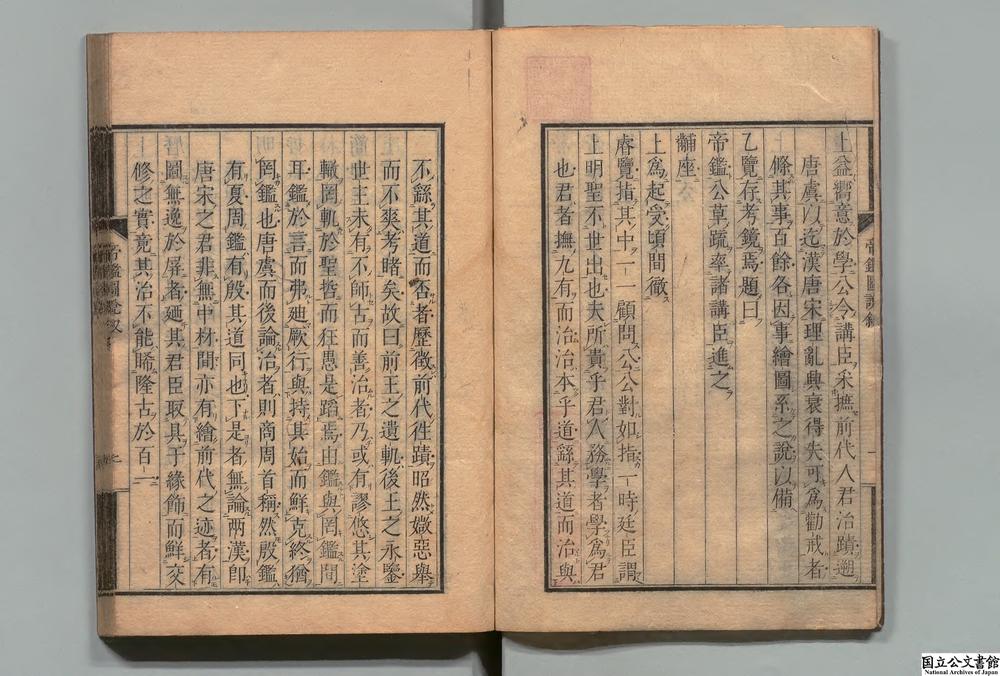 上益嚮意於學公令講臣采摭前代人君治蹟遡
唐虞以迄漢唐宋理亂興衰得失可為勸戒者
條其事百餘各因事繪圖系之說以備
乙覽存考鏡焉題曰
帝鑑公草疏率諸講臣進之
黼座
上為起受頃間徹
睿覽指其中一一顧問公公對如指一時廷臣謂
上明聖不世出也夫所貴乎君人務學者學為君
也君者撫九有而治治本乎道繇其道而治與
不繇其道而否者歷徴前代徃蹟昭然媺惡舉
而不爽考睹矣故曰前王之遺軌後王之永鑒
世主未有不師古而善治者乃或有謬悠其塗
轍罔軌於聖哲而狂愚是蹈焉由鑑與罔鑑間
耳鑑於言而弗廸厥行與持其始而鮮克終猶
罔鑑也唐虞而後論治者則商周首稱然殷鑑
有夏周鑑有殷其道同也下是者無論兩漢卽
唐宋之君非無中材間亦有繪前代之迹者有
圖無逸於屏者廼其君臣取具于緣飾而鮮交
修之實竟其治不能睎隆古於百一
帝鑑圖說叙
一
帝鑑圖說叙
国立公文書館
National Archives of Japan